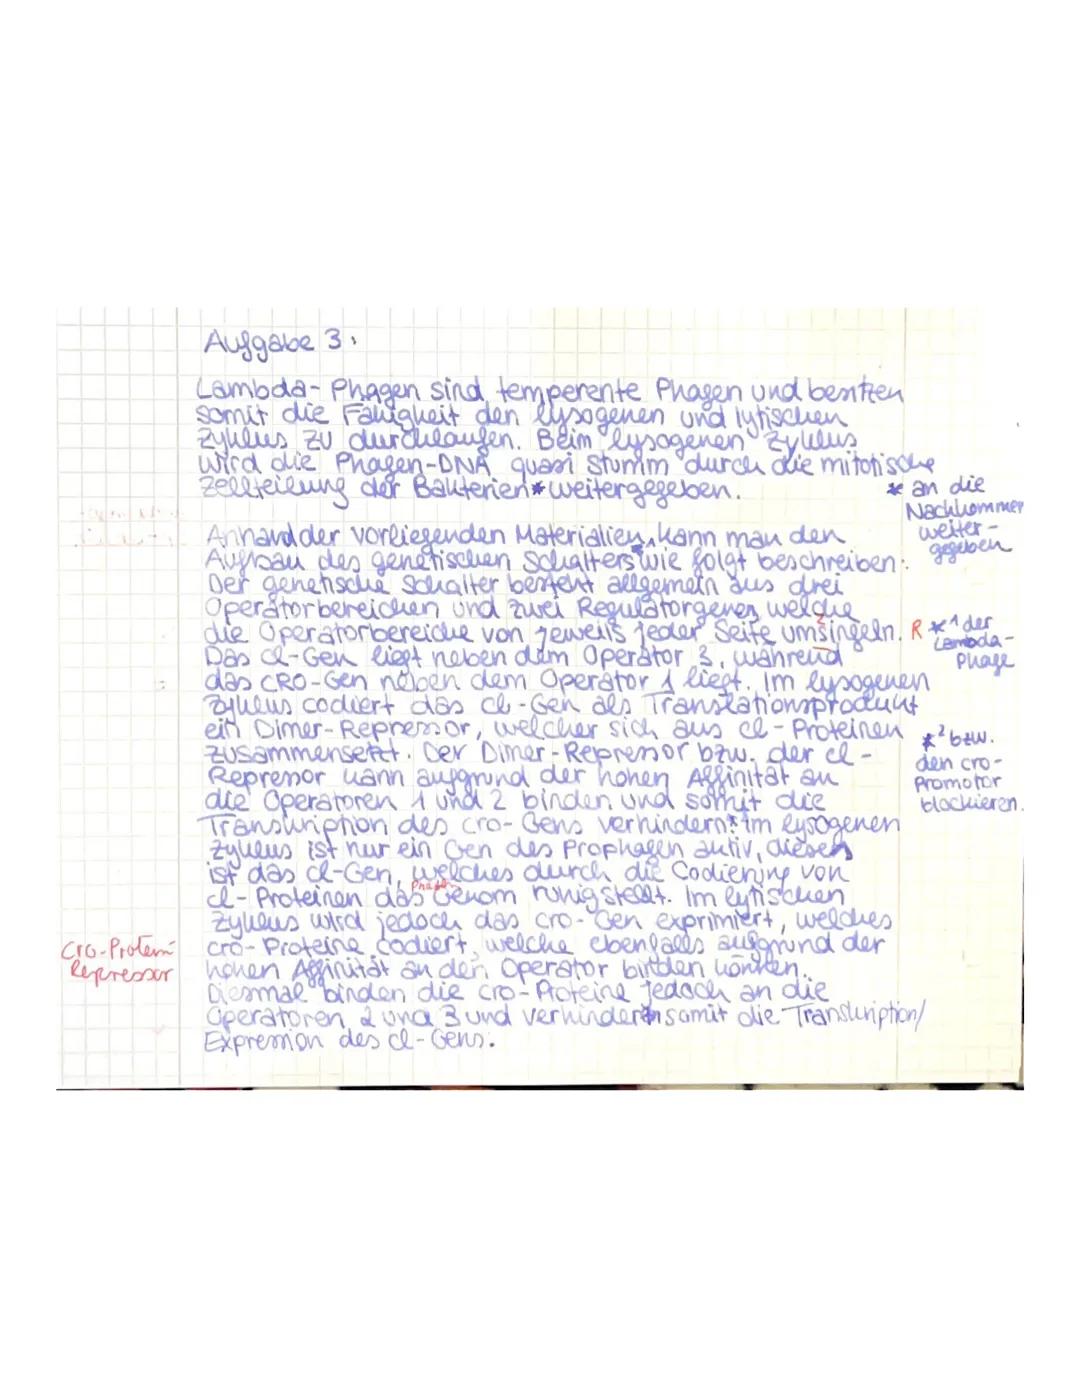 Aufgabe 3:
Lambda-Phagen sind temperente Phagen und besitzen
somit die Fähigkeit den lysogenen und lytischen
Zyklus zu durchlaufen. Beim lysogenen Zyklus
wird die Phagen-DNA quasi stumm durch die mitotische
Zellteilung der Bakterien * weitergegeben.
* an die
Nachkommen
weiter-
gegeben
Anhand der vorliegenden Materialien, kann man den
Aufbau des genetischen Schalters wie folgt beschreiben:
Der genetische Schalter besteht allgemein aus drei
Operatorbereichen und zwei Regulatorgenen, welche
die Operatorbereiche von jeweils jeder Seite umsingeln.
R *1 der
Lambda-
Phage
Das cl-Gen liegt neben dem Operator 3, während
das CRO-Gen neben dem Operator 1 liegt. Im lysogenen
Zyklus codiert das cl-Gen als Translationsprodukt
ein Dimer-Repressor, welcher sich aus cl-Proteinen
zusammensetzt. Der Dimer-Repressor bzw. der cl-
Repressor kann aufgrund der hohen Affinität an
die Operatoren 1 und 2 binden und somit die
Transkription des cro-Gens verhindern.*² Im lysogenen
*² bzw.
den cro-
Promotor
blockieren.
Zyklus ist nur ein Gen des Prophagen aktiv, dieses
ist das cl-Gen, welches durch die Codierung von
cl-Proteinen das Phagen Genom ruhigstellt. Im lytischen
Zyklus wird jedoch das cro-Gen exprimiert, welches
cro-Proteine codiert, welche ebenfalls aufgrund der
hohen Affinität an den Operator binden könnten.
Cro-Protein
Repressor
Diesmal binden die cro-Proteine jedoch an die
Operatoren 2 und 3 und verhindern somit die Transkription/
Expression des cl-Gens.